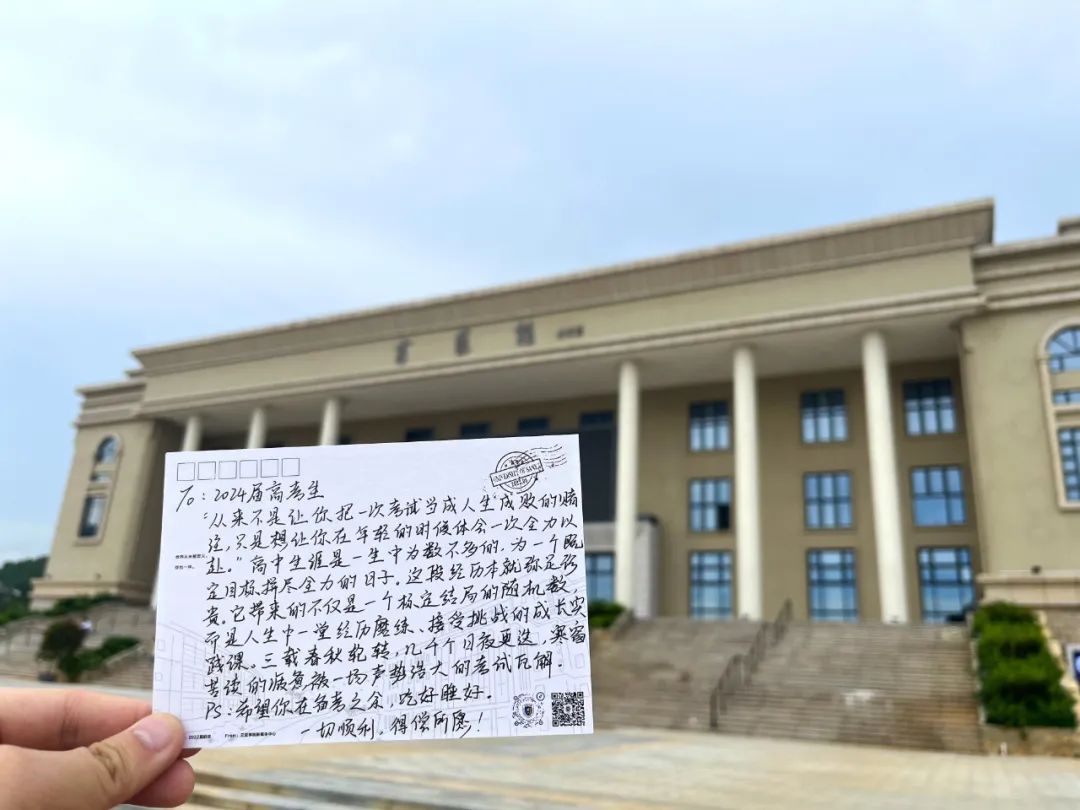 To：2024届高考生
“从来不是让你把一次考试当成人生成败的赌
注，只是想让你在年轻的时候体会一次全力以
赴。”高中生涯是一生中为数不多的，为一个既
定目标拼尽全力的日子。这段经历本就弥足珍
贵。它带来的不仅是一个标定结局的随机数，
而是人生中一堂经历磨练、接受挑战的成长实
践课。三载春秋轮转，几千个日夜更迭，寒窗
苦读的
被一场声势浩大的考试瓦解.
PS：希望你在备考之余，吃好睡好.
一切顺利，得偿所愿！
UNIVERSITY OF SANYA